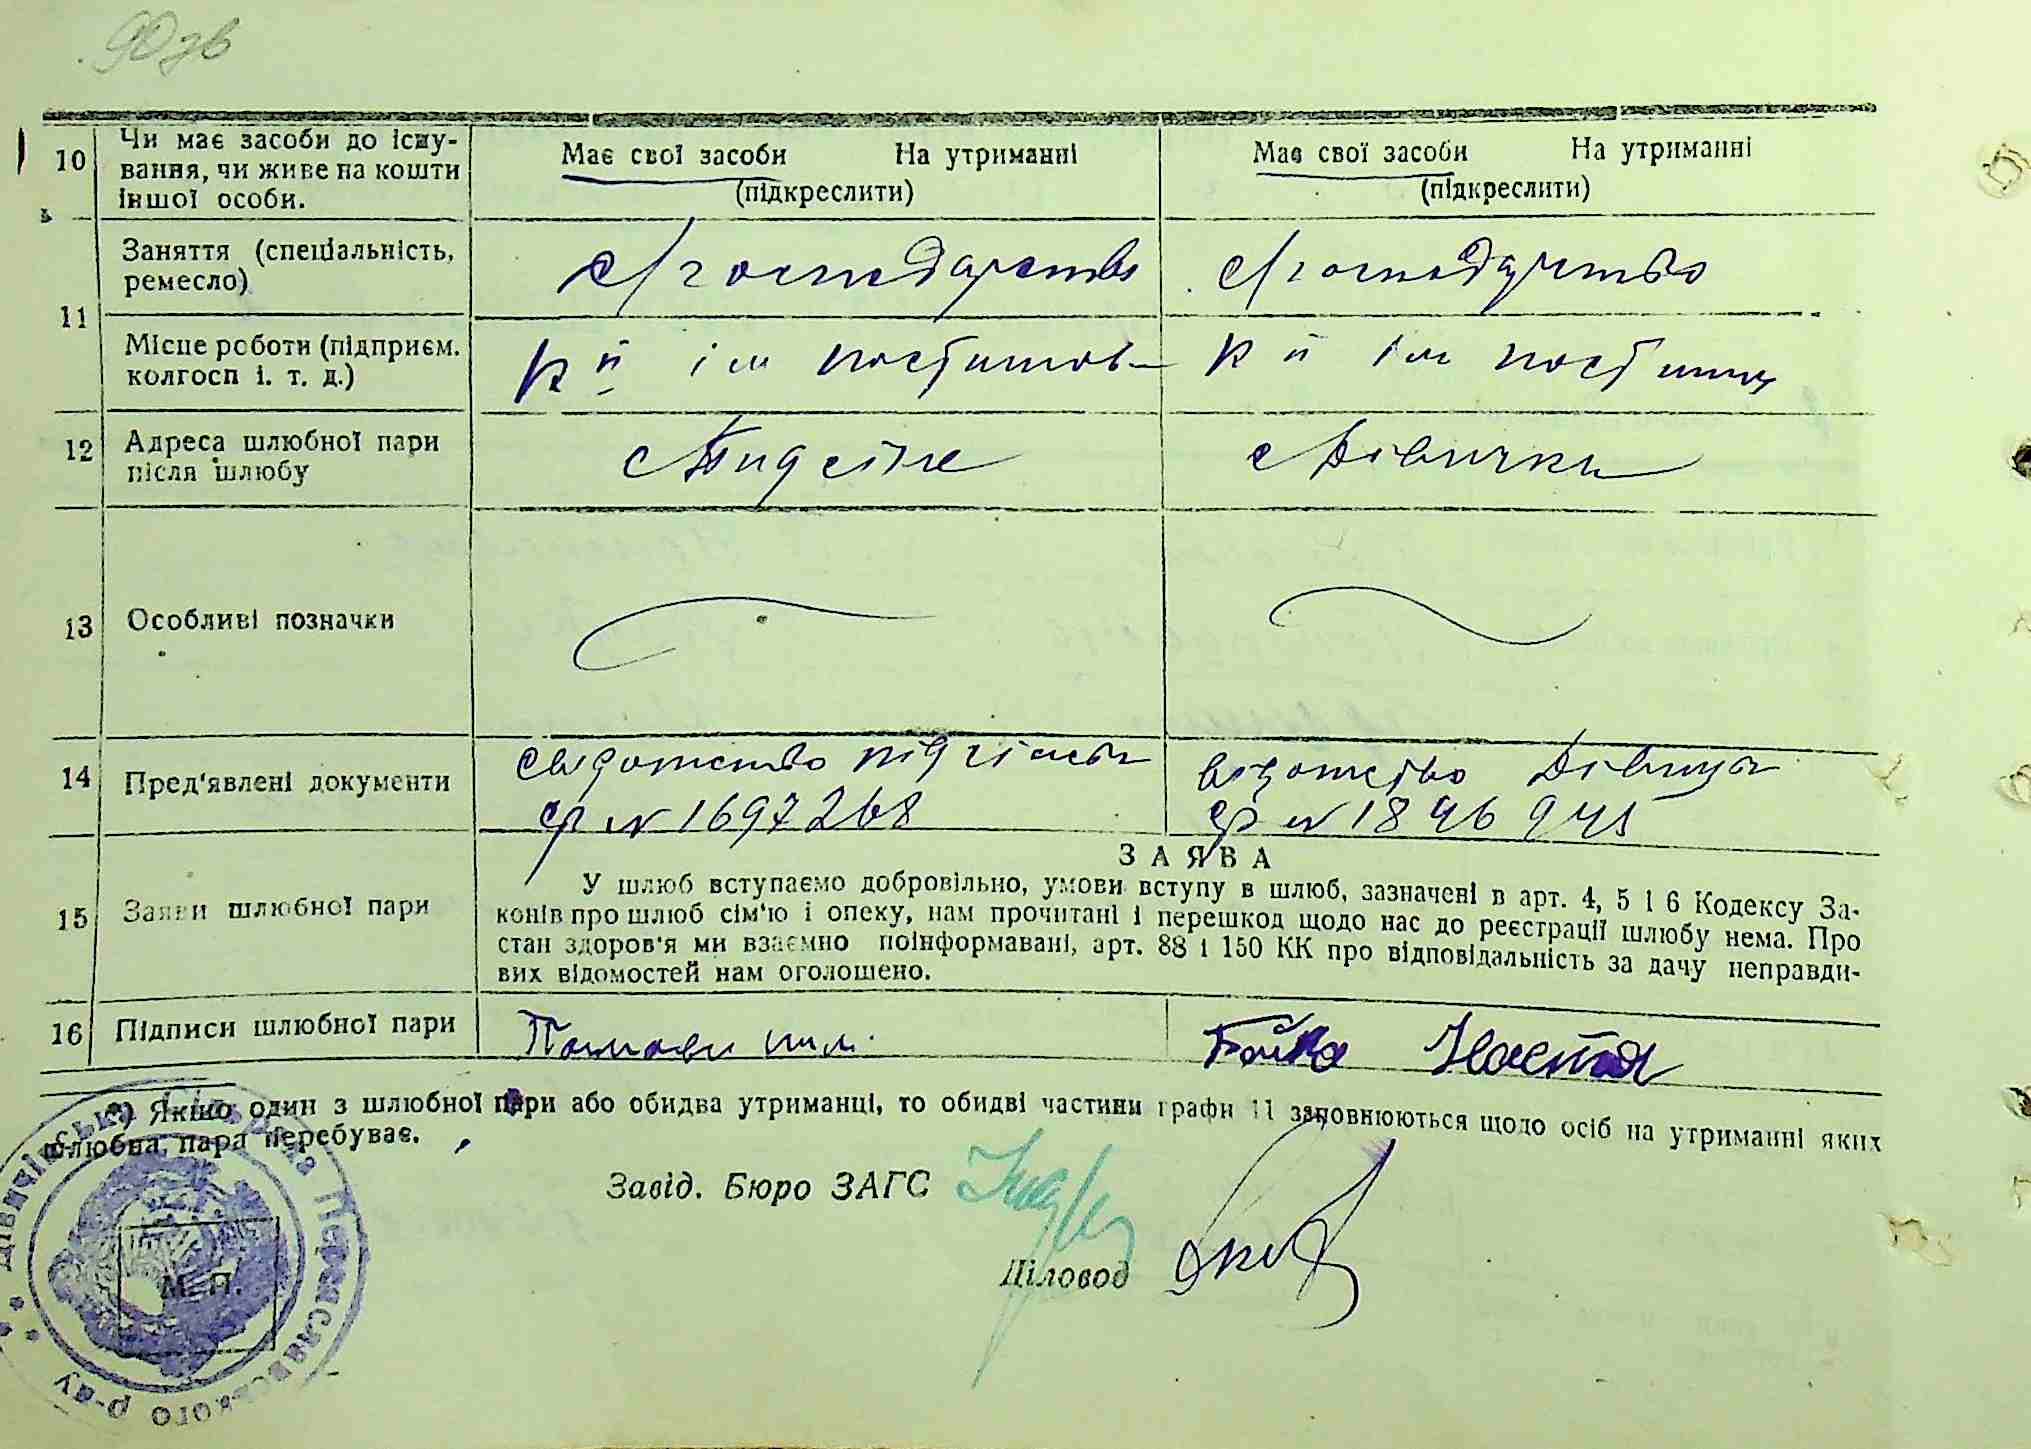 90 зв
10 Чи має засоби до існу-
вання, чи живе на кошти
іншої особи.
Має свої засоби На утриманні
(підкреслити)
Має свої засоби На утриманні
(підкреслити)
11
Заняття (спеціальність,
ремесло)
с/господарство
с/господарство
Місце роботи (підприєм.
колгосп і. т. д.)
ім
ім
12 Адреса шлюбної пари
після шлюбу
с
с Дівички
13 Особливі позначки
14 Пред'явлені документи
№ 1697268
№ 1846945
15 Заяви шлюбної пари
ЗАЯВА
У шлюб вступаємо добровільно, умови вступу в шлюб, зазначені в арт. 4, 5 і 6 Кодексу За-
конів про шлюб сім'ю і опеку, нам прочитані і перешкод щодо нас до реєстрації шлюбу нема. Про
стан здоров'я ми взаємно поінформавані, арт. 88 і 150 КК про відповідальність за дачу неправди-
вих відомостей нам оголошено.
16 Підписи шлюбної пари
Бойко Настя
*) Якщо один з шлюбної пари або обидва утриманці, то обидві частини графи 11 заповнюються щодо осіб на утриманні яких
шлюбна, пара перебуває.
Завід. Бюро ЗАГС
Діловод
М. П.
Дівичківська Сільрада Переяславського р-ну